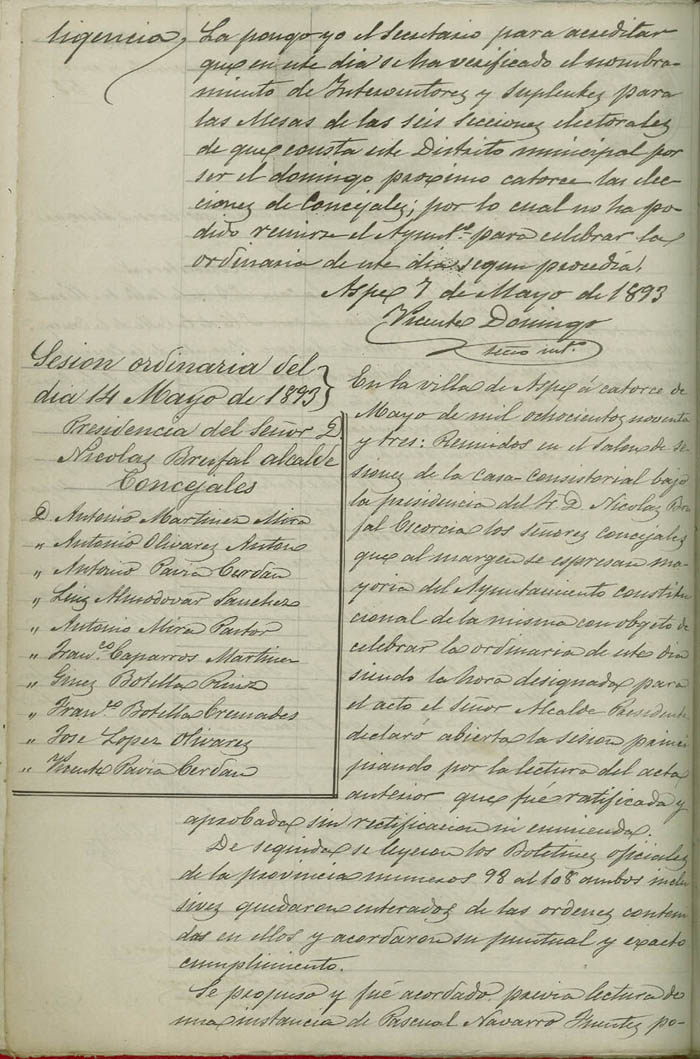 ligencia, La pongo yo el Secretario para acreditar
que en este dia se ha verificado el nombra-
miento de Interventores y Suplentes para
las Mesas de las seis secciones electorales
de que consta este Distrito municipal por
ser el domingo proximo catorce las elec-
ciones de Concejales; por lo cual no ha po-
dido reunirse el Ayunt.º para celebrar la
ordinaria de este dia segun procedia.
Aspe 7 de Mayo de 1893
Vicente Domingo
secrio intº.
Sesion ordinaria del
dia 14 Mayo de 1893
Presidencia del Señor D.
Nicolas Brufal alcalde
Concejales
D Antonio Martinez Mira
" Antonio Olivares Anton
" Antonio Pavia Cerdan
" Luis Almodovar Sanchez
" Antonio Mira Pastor
" Fran.co Caparros Martinez
" Gines Botella Perez
" Fran.co Botella Cremades
" Jose Lopez Olivares
" Vicente Pavia Cerdan
En la villa de Aspe á catorce de
Mayo de mil ochocientos noventa
y tres: Reunidos en el Salon de se-
siones de la casa consistorial bajo
la presidencia del Sr D. Nicolas Bru-
fal Escorcia los señores concejales
que al margen se espresan ma-
yoria del Ayuntamiento constitu-
cional de la misma con objeto de
celebrar la ordinaria de este dia
siendo la hora designada para
el acto el señor Alcalde Presidente
declaró abierta la sesion princi-
piando por la lectura del acta
anterior que fué ratificada y
aprobada sin rectificacion ni enmienda.
De seguida se leyeron los Boletines oficiales
de la provincia numeros 98 al 108 ambos inclu-
sives quedaron enterados de las ordenes conteni-
das en ellos y acordaron su puntual y exacto
cumplimiento.
Se propuso y fué acordado previa lectura de
una instancia de Pascual Navarro Fuentes po-